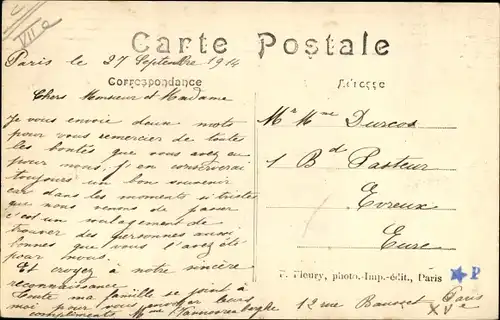 VIIe
Carte Postale
Paris le 27 Septembre 1914
Correspondance
Adresse
Chers Monsieur et Madame
Je vous envoie deux mots
pour vous remercier de toutes
les bontés que vous avez eu
pour nous. J'en conserverai
toujours un bon souvenir
car dans les moments si tristes
que nous venons de passer
c'est un soulagement de
trouver des personnes aussi
bonnes que vous l'avez été
pour nous.
Et croyez à notre sincère
reconnaissance.
Toute ma famille se joint à
moi pour vous envoyer leurs
compliments Mme
Mr Mme Durcos
1 Bd Pasteur
Evreux
Eure
F. Fleury, photo.-Imp.-édit., Paris
P
12 rue Bausset Paris
XV